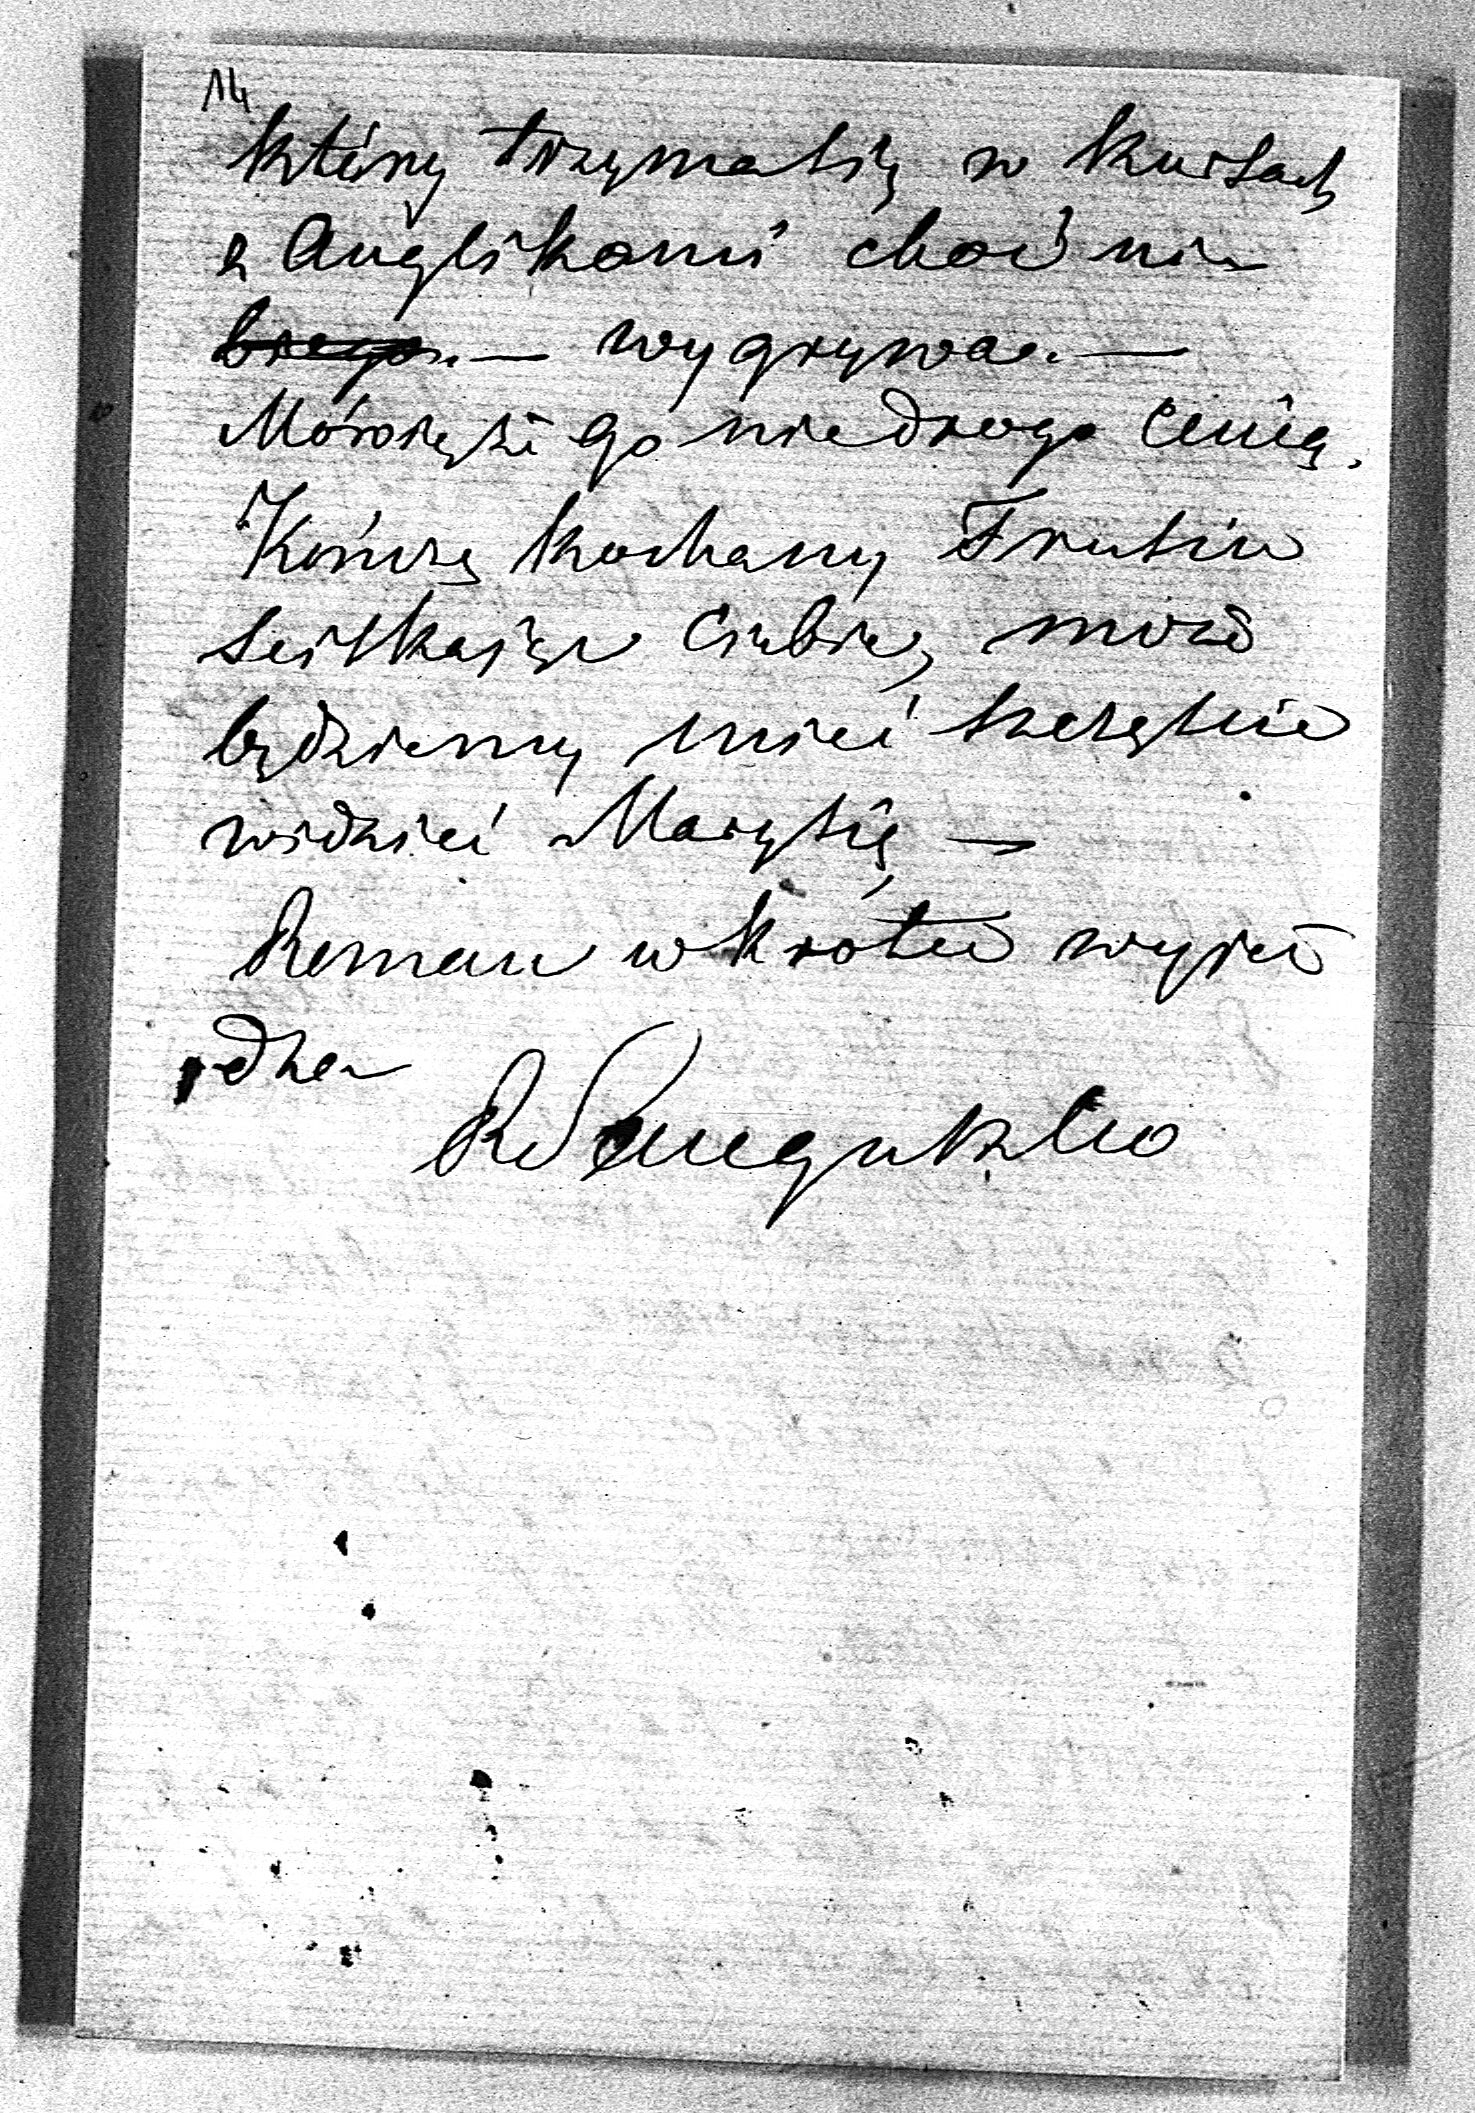 14
który trzymał się w kursach
z Anglikami choć nie
— wygrywa. —
Mówią że go nie drogo cenią.
Kończę kochany Frutiu
ściskając Ciebie, może
będziemy mieć szczęście
widzieć Marysię —
Roman w krótce wyjeż
dża
R Sanguszko